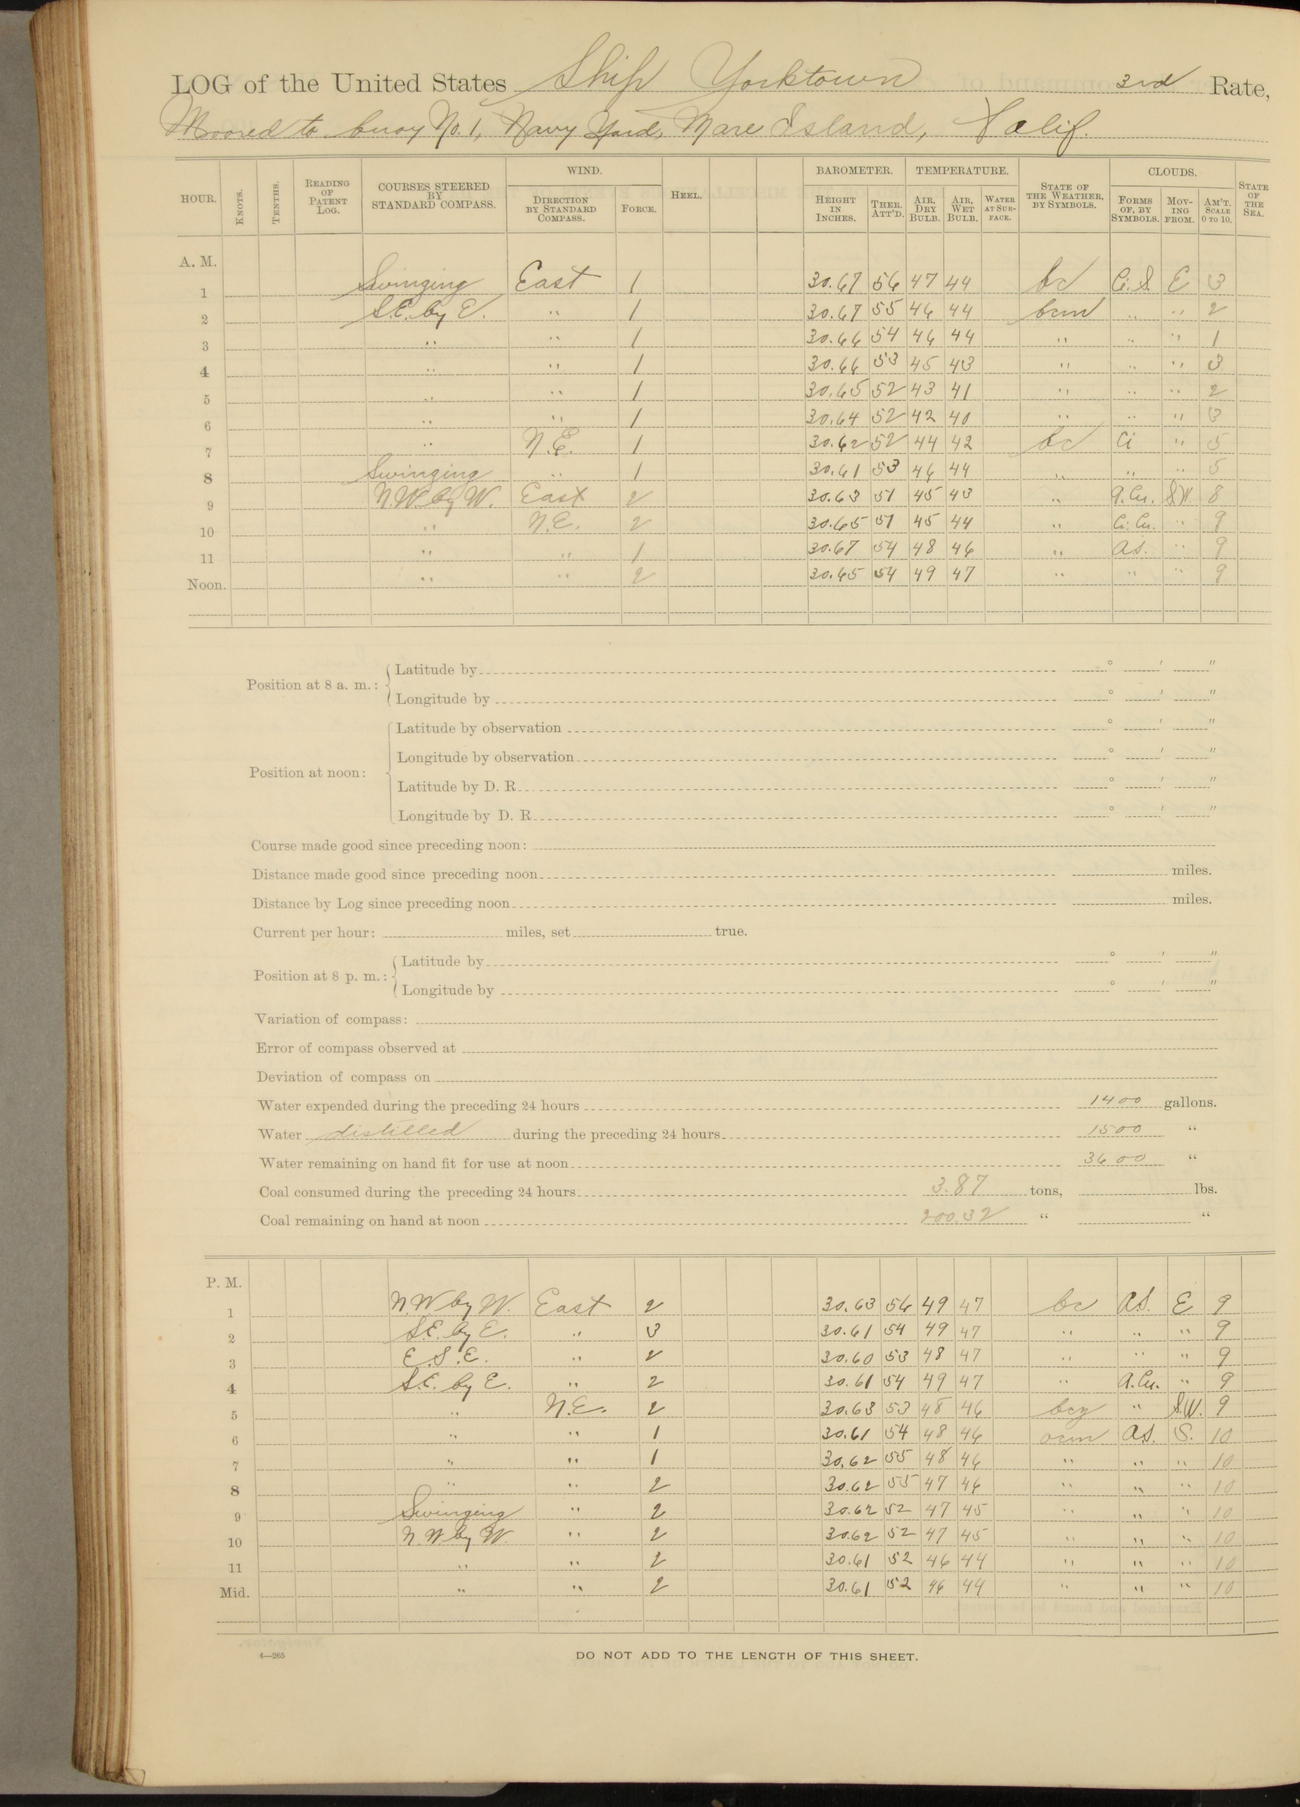 LOG of the United States Ship Yorktown 3rd Rate,
Moored to buoy No. 1, Navy Yard, Mare Island, Calif.
HOUR. KNOTS. TENTHS. READING OF PATENT LOG. COURSES STEERED BY STANDARD COMPASS. WIND. DIRECTION BY STANDARD COMPASS. FORCE. HEEL. BAROMETER. HEIGHT IN INCHES. THER. ATT'D. TEMPERATURE. AIR, DRY BULB. AIR, WET BULB. WATER AT SUR-FACE. STATE OF THE WEATHER, BY SYMBOLS. CLOUDS. FORMS OF, BY SYMBOLS. MOV-ING FROM. AM'T. SCALE 0 TO 10. STATE OF THE SEA.
A. M.
1 Swinging East 1 30.67 56 47 44 bc Ci.S. E 3
2 S.E. by E. " 1 30.67 55 46 44 bcm " " 2
3 " " 1 30.66 54 46 44 " " " 1
4 " " 1 30.66 53 45 43 " " " 3
5 " " 1 30.65 52 43 41 " " " 2
6 " " 1 30.64 52 42 40 " " " 3
7 " N.E. 1 30.62 52 44 42 bc Ci " 5
8 Swinging " 1 30.61 53 46 44 " " " 5
9 N.W. by W. East 2 30.63 51 45 43 " A.Cu. S.W. 8
10 " N.E. 2 30.65 51 45 44 " Ci.Cu. " 9
11 " " 1 30.67 54 48 46 " A.S. " 9
Noon. " " 2 30.65 54 49 47 " " " 9
Position at 8 a. m.: Latitude by ° ' "
Longitude by ° ' "
Position at noon: Latitude by observation ° ' "
Longitude by observation ° ' "
Latitude by D. R. ° ' "
Longitude by D. R. ° ' "
Course made good since preceding noon:
Distance made good since preceding noon miles.
Distance by Log since preceding noon miles.
Current per hour: miles, set true.
Position at 8 p. m.: Latitude by ° ' "
Longitude by ° ' "
Variation of compass:
Error of compass observed at
Deviation of compass on
Water expended during the preceding 24 hours 1400 gallons.
Water distilled during the preceding 24 hours 1500 "
Water remaining on hand fit for use at noon 3600 "
Coal consumed during the preceding 24 hours 3.87 tons, lbs.
Coal remaining on hand at noon 200.32 " "
P. M.
1 N.W by W. East 2 30.63 56 49 47 bc A.S. E 9
2 S.E. by E. " 3 30.61 54 49 47 " " " 9
3 E.S.E. " 2 30.60 53 48 47 " " " 9
4 S.E. by E. " 2 30.61 54 49 47 " A.Cu. " 9
5 " N.E. 2 30.63 53 48 46 bcz " S.W. 9
6 " " 1 30.61 54 48 46 ocm A.S. S. 10
7 " " 1 30.62 55 48 46 " " " 10
8 " " 2 30.62 55 47 46 " " " 10
9 Swinging " 2 30.62 52 47 45 " " " 10
10 N.W by W. " 2 30.62 52 47 45 " " " 10
11 " " 2 30.61 52 46 44 " " " 10
Mid. " " 2 30.61 52 46 44 " " " 10
4—265
DO NOT ADD TO THE LENGTH OF THIS SHEET.